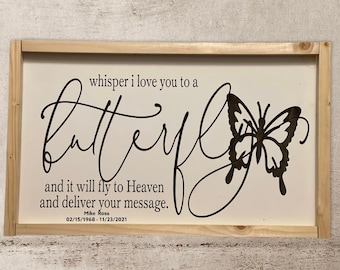 whisper i love you to a
butterfly
and it will fly to Heaven
and deliver your message.
Mike Ross
02/15/1968 - 11/23/2021